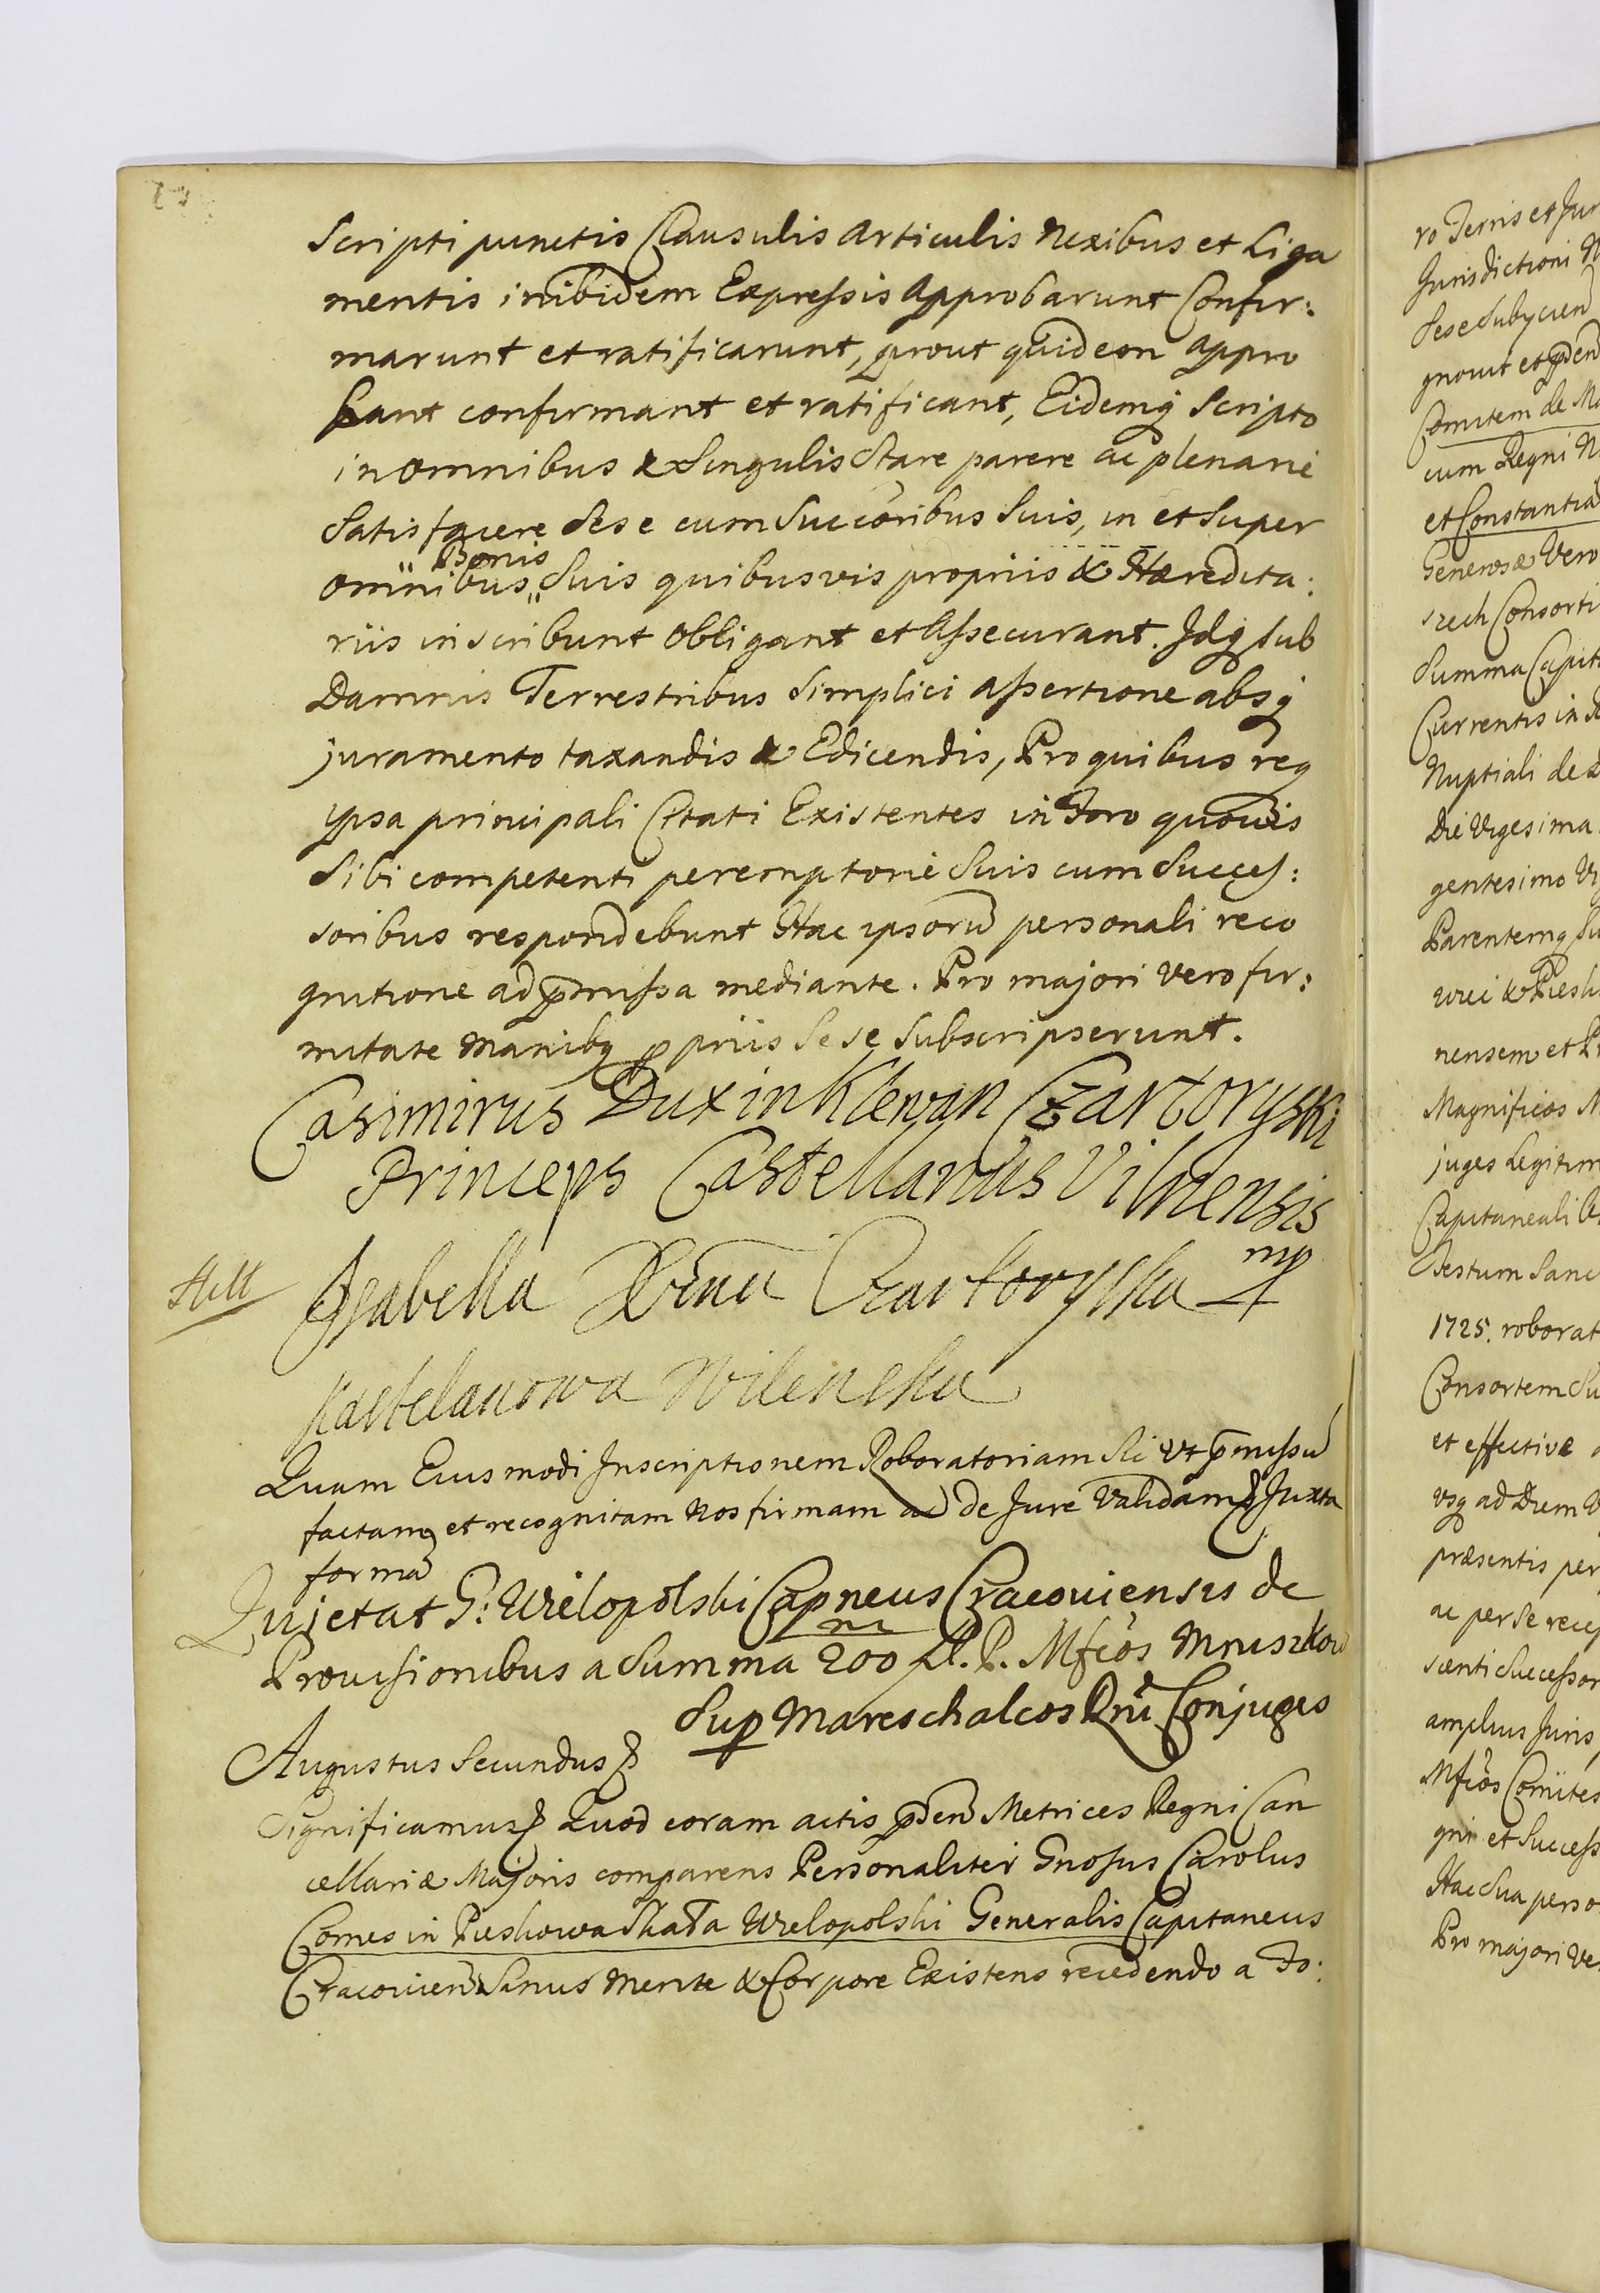 Scripti punctis Clausulis Articulis Nexibus et Liga
mentis inibidem Expressis Approbarunt Confir:
marunt et ratificarunt, prout quidem Appro
bant confirmant et ratificant, Eidemq Scripto
in omnibus & Singulis Stare parere ac plenarie
Satisfacere Sese cum Succoribus Suis, in et Super
Bonis
omnibus Suis quibusvis propriis & Hæredita:
riis inscribunt Obligant et Assecurant. Jdq sub
Damnis Terrestribus Simplici Assertione absq
juramento taxandis & Edicendis, Pro quibus req
ypsa principali Citati Existentes in Foro quovis
Sibi competenti peremptorie Suis cum Succes:
soribus respondebunt Hac ipsorū personali reco
gnitione ad pmissa mediante. Pro majori vero fir:
mitate Manibq ppriis Sese Subscripserunt.
Casimirus Dux in Klewan Czartoryski
Princeps Castellanus Vilnensis
Isabella Xżna Czartoryska mp
Kasztelanowa Wilenska
Quam Eiusmodi Inscriptionem Roboratoriam Sic Ut pmissū
factam et recognitam Nos firmam ac de Jure Validam Juxta
formā
Quietat G: Wielopolski Capneus Cracoviensis de
Provisionibus a Summa 200 m P. Mfcos Mniszkow
Sup Mareschalcos Rni Conjuges
Augustus Secundus
Significamus Quod coram actis pden Metrices Regni Can
cellariæ Majoris comparens Personaliter Gnosus Carolus
Comes in Pieskowa Skała Wielopolski Generalis Capitaneus
Cracovien Sanus Mente & Corpore Existens recedendo a Fo:
ro Terris et Jur
Jurisdictioni N
Sese Subycien
gnovit et pden
Comitem de M
cum Regni N
et Constantia
Generosæ Vero
szech Consorti
Summa Capit
Currentis in
Nuptiali de
Die Vigesima
gentesimo
Parentemq Su
nensem et P
Magnificos M
juges Legitim
Capitaneali
Festum Sanc
1725. roborat
Consortem Su
et effective
usq ad Diem
præsentis per
ac per se rece
Successor
amplius Juris
Mfcos Comites
gni et Success
Hac Sua perso
Pro majori Ve